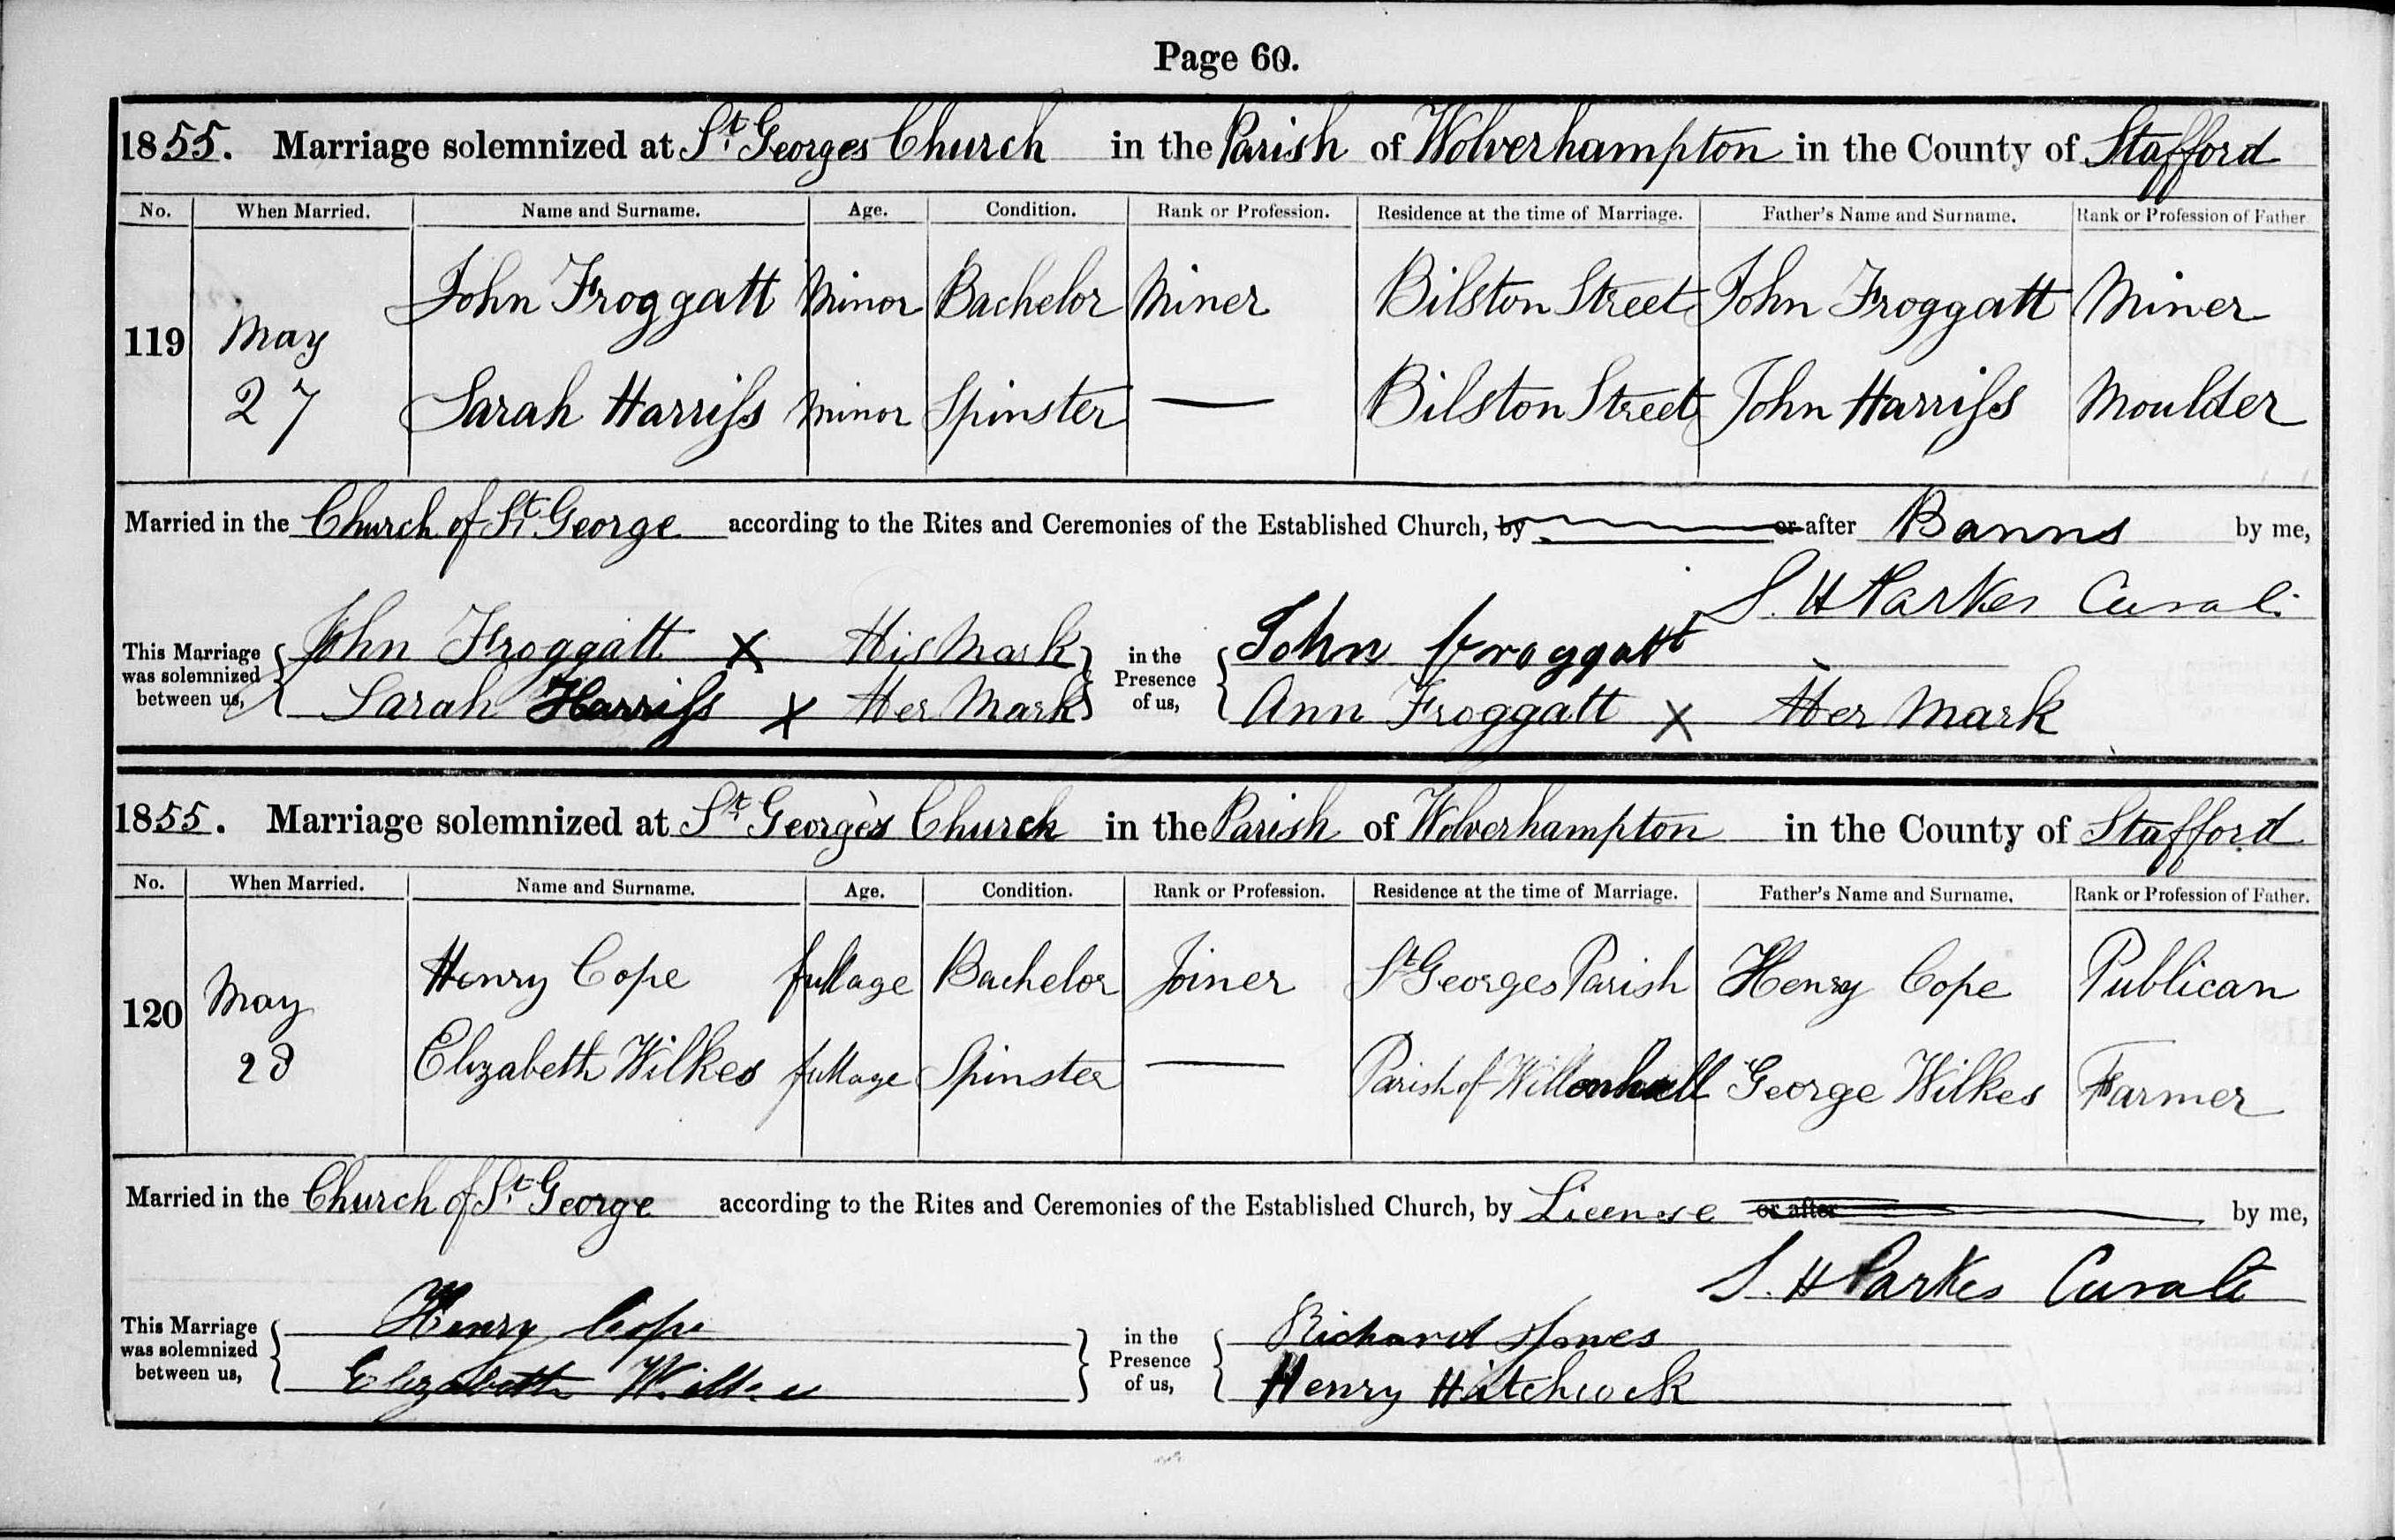 Page 60.
1855. Marriage solemnized at St. Georges Church in the Parish of Wolverhampton in the County of Stafford
No. When Married. Name and Surname. Age. Condition. Rank or Profession. Residence at the time of Marriage. Father's Name and Surname. Rank or Profession of Father
John Froggatt Minor Bachelor Miner Bilston Street John Froggatt Miner
119 May
27 Sarah Harriss Minor Spinster — Bilston Street John Harriss Moulder
Married in the Church of St. George according to the Rites and Ceremonies of the Established Church, by or after Banns by me,
S. H Parkes Curate
This Marriage was solemnized between us, John Froggatt X His Mark in the Presence of us, John Froggatt
Sarah Harriss X Her Mark Ann Froggatt X Her Mark
1855. Marriage solemnized at St. George's Church in the Parish of Wolverhampton in the County of Stafford
No. When Married. Name and Surname. Age. Condition. Rank or Profession. Residence at the time of Marriage. Father's Name and Surname. Rank or Profession of Father.
Henry Cope full age Bachelor Joiner St Georges Parish Henry Cope Publican
120 May
28 Elizabeth Wilkes full age Spinster — Parish of Willenhall George Wilkes Farmer
Married in the Church of St. George according to the Rites and Ceremonies of the Established Church, by License or after by me,
S. H Parkes Curate
This Marriage was solemnized between us, Henry Cope in the Presence of us, Richard Jones
Elizabeth Wilkes Henry Hitchcock